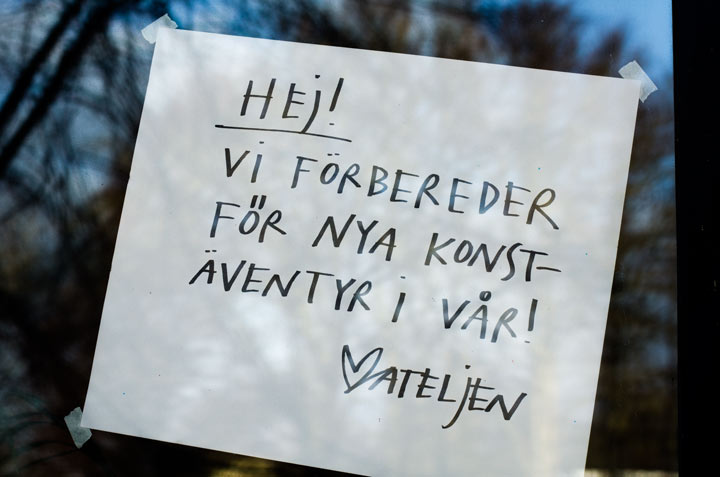 HEj!
Vi FÖRBEREDER
FÖR NYA KONST-
ÄVENTYR i VÅR!
♡ATELjEN